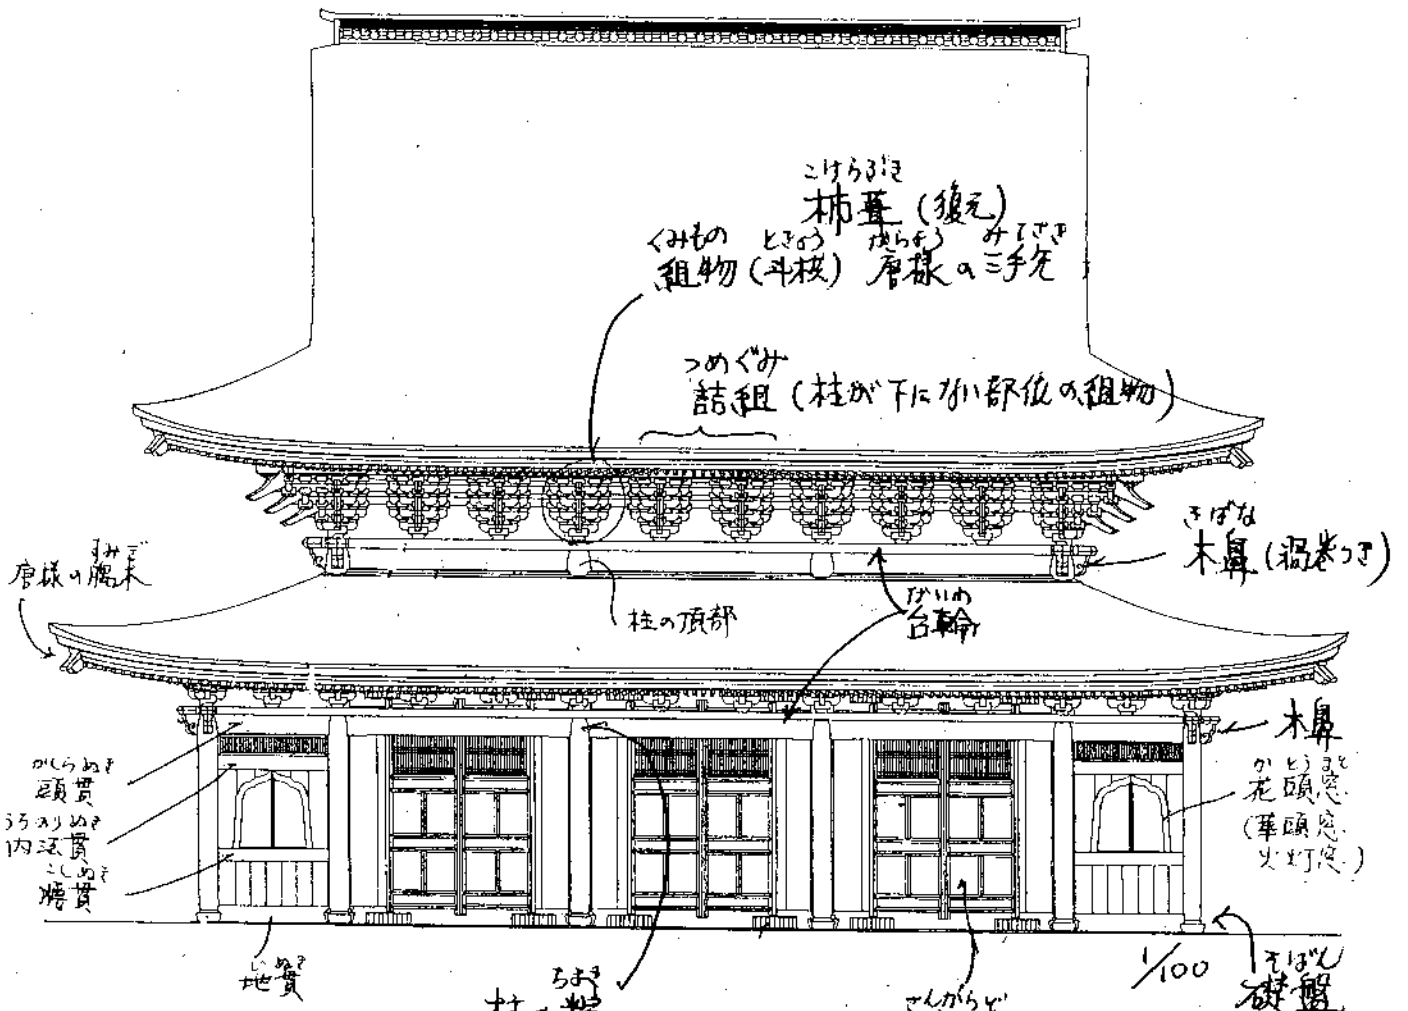 こけらぶき
柿葺(復元)
くみもの ときょう からよう みてさき
組物(斗栱) 唐様の三手先
つめぐみ
詰組(柱が下にない部位の組物)
きばな
木鼻(渦巻つき)
すみぎ
唐様の隅木
柱の頂部
だいわ
台輪
木鼻
かしらぬき
頭貫
うちのりぬき
内法貫
こしぬき
腰貫
かとうまど
花頭窓
(華頭窓
火灯窓)
じぬき
地貫
ちまき
さんからど
1/100
そばん
礎盤